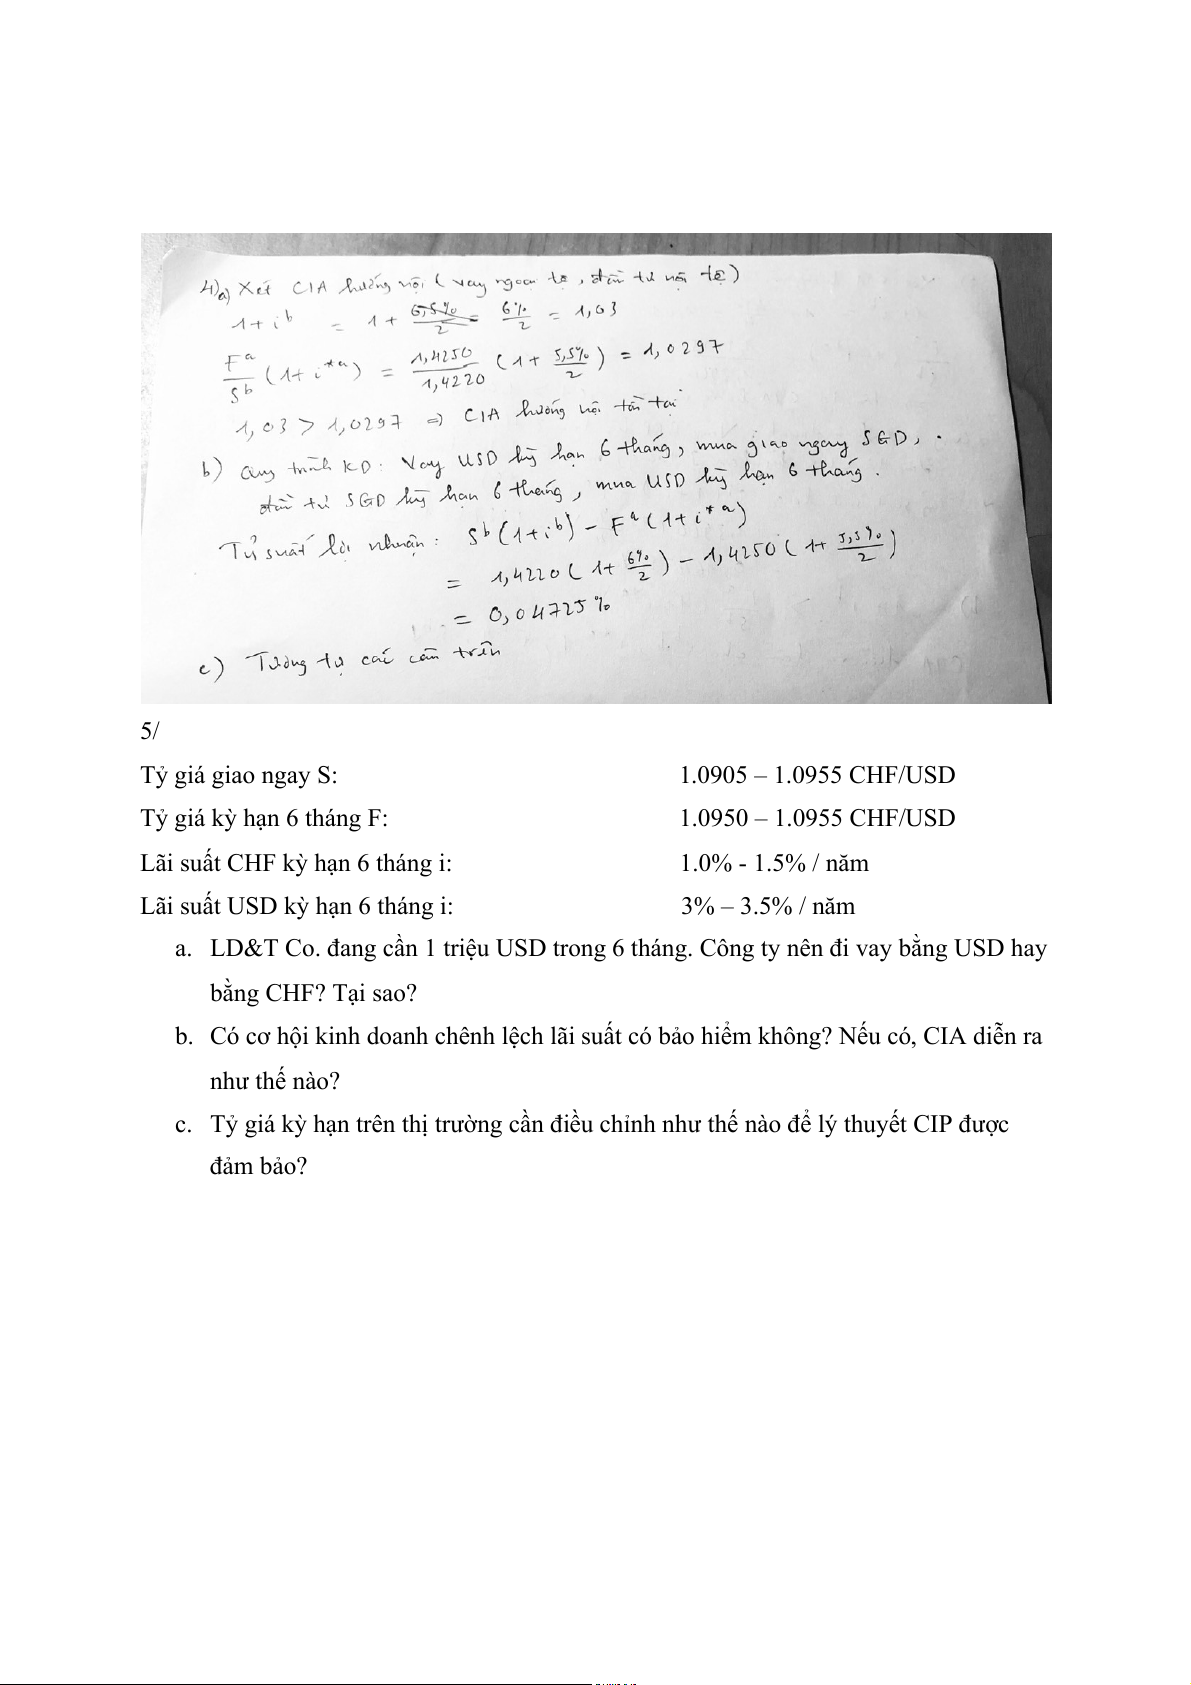 4)a) Xét CIA hướng nội (vay ngoại tệ, đầu tư nội tệ)
1+i^b = 1 + 6,5%/2 = 6%/2 = 1,03
F^a/S^b (1+i*^a) = 1,4250/1,4220 (1 + 5,5%/2) = 1,0297
1,03 > 1,0297 => CIA hướng nội tồn tại
b) Quy trình KD: Vay USD kỳ hạn 6 tháng, mua giao ngay SGD,
đầu tư SGD kỳ hạn 6 tháng, mua USD kỳ hạn 6 tháng.
Tỷ suất lợi nhuận: S^b(1+i^b) - F^a(1+i*^a)
= 1,4220(1+ 6%/2) - 1,4250(1+ 5,5%/2)
= 0,04725%
c) Tương tự các câu trên
5/
Tỷ giá giao ngay S: 1.0905 – 1.0955 CHF/USD
Tỷ giá kỳ hạn 6 tháng F: 1.0950 – 1.0955 CHF/USD
Lãi suất CHF kỳ hạn 6 tháng i: 1.0% - 1.5% / năm
Lãi suất USD kỳ hạn 6 tháng i: 3% – 3.5% / năm
a. LD&T Co. đang cần 1 triệu USD trong 6 tháng. Công ty nên đi vay bằng USD hay
bằng CHF? Tại sao?
b. Có cơ hội kinh doanh chênh lệch lãi suất có bảo hiểm không? Nếu có, CIA diễn ra
như thế nào?
c. Tỷ giá kỳ hạn trên thị trường cần điều chỉnh như thế nào để lý thuyết CIP được
đảm bảo?